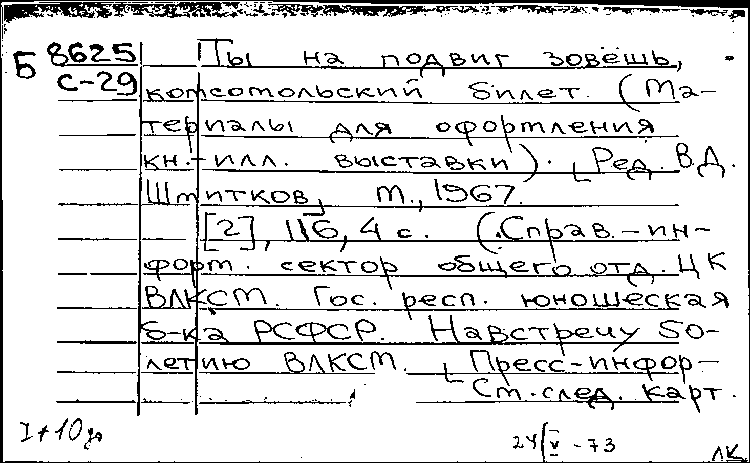 Б 8625 Ты на подвиг зовёшь,
С-29 комсомольский билет. (Ма-
териалы для оформления
кн.-илл. выставки). [Ред. В.Д.
Шмитков] М., 1967.
[2], 116, 4 с. (Справ.-ин-
форм. сектор общего отд. ЦК
ВЛКСМ. Гос. респ. юношеская
б-ка РСФСР. Навстречу 50-
летию ВЛКСМ. [Пресс-инфор-
См. след. карт.
24/V-73
ЛК